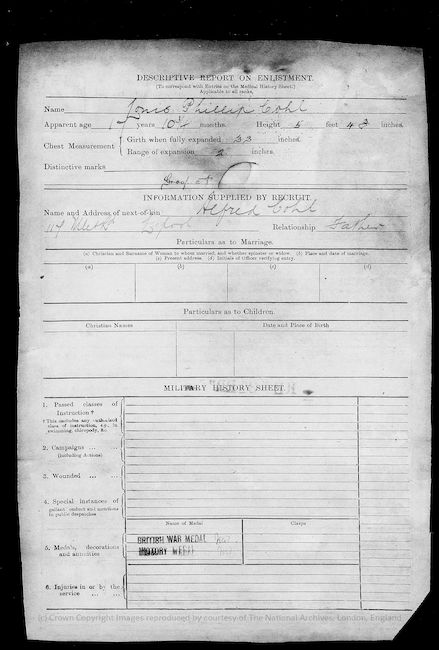 DESCRIPTIVE REPORT ON ENLISTMENT.
[To correspond with Entries on the Medical History Sheet.]
Applicable to all ranks,
Name Phillip Cohl
Apparent age 17 years 10 months. Height 5 feet 4 inches.
Chest Measurement { Girth when fully expanded 33 inches.
Range of expansion 2 inches.
Distinctive marks
INFORMATION SUPPLIED BY RECRUIT.
Name and Address of next-of-kin Alfred Cohl
Relationship Father
Particulars as to Marriage.
(a) Christian and Surname of Woman to whom married, and whether spinster or widow. (b) Place and date of marriage.
(c) Present address. (d) Initials of Officer verifying entry.
(a) (b) (c) (d)
Particulars as to Children.
Christian Names Date and Place of Birth
MILITARY HISTORY SHEET.
1. Passed classes of
Instruction †
† This includes any authorised
class of instruction, e.g., in
swimming, chiropody, &c.
2. Campaigns ... ...
(including Actions)
3. Wounded ... ...
4. Special instances of
gallant conduct and mentions
in public despatches
Name of Medal Clasps
5. Medals, decorations
and annuities
BRITISH WAR MEDAL
VICTORY MEDAL
6. Injuries in or by the
service ... ...
(c) Crown Copyright Images reproduced by courtesy of The National Archives, London, England